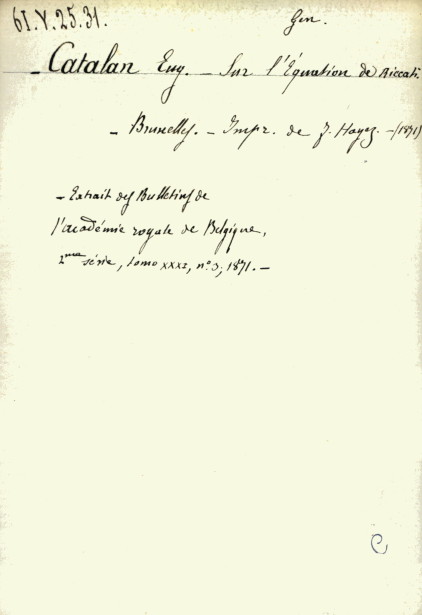 61.V.25.31.
Gen.
- Catalan Eug. - Sur l'Équation de Riccati.
- Bruxelles. - Impr. de F. Hayez. - (1871)
- Extrait des Bulletins de
l'académie royale de Belgique,
2me série, tome XXXI, n°. 3; 1871. -
C